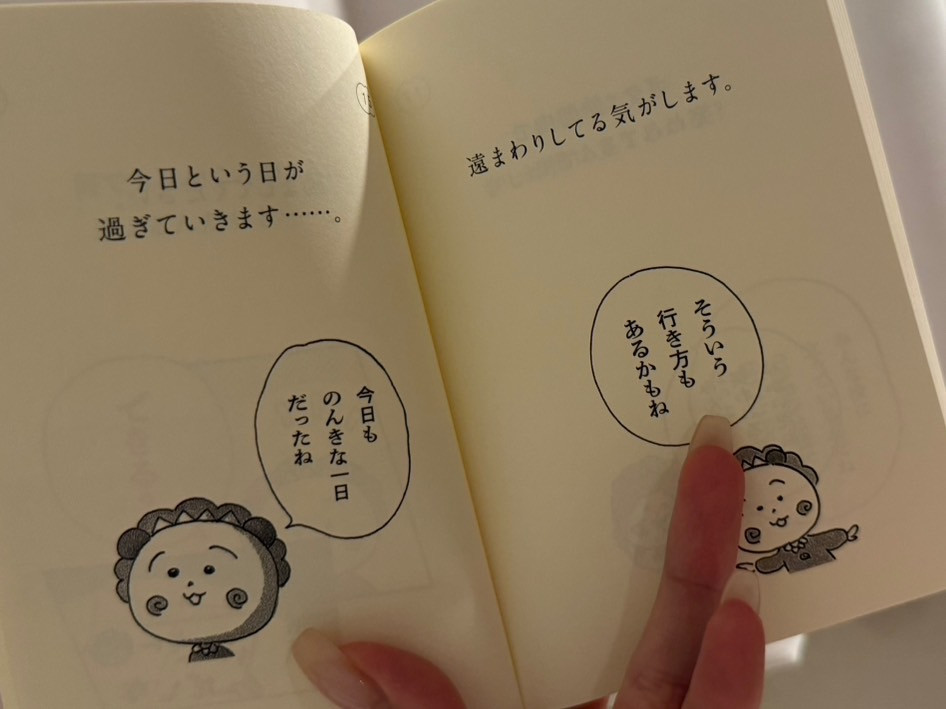 今日という日が
過ぎていきます……。
今日も
のんきな一日
だったね
遠まわりしてる気がします。
そういう
行き方も
あるかもね